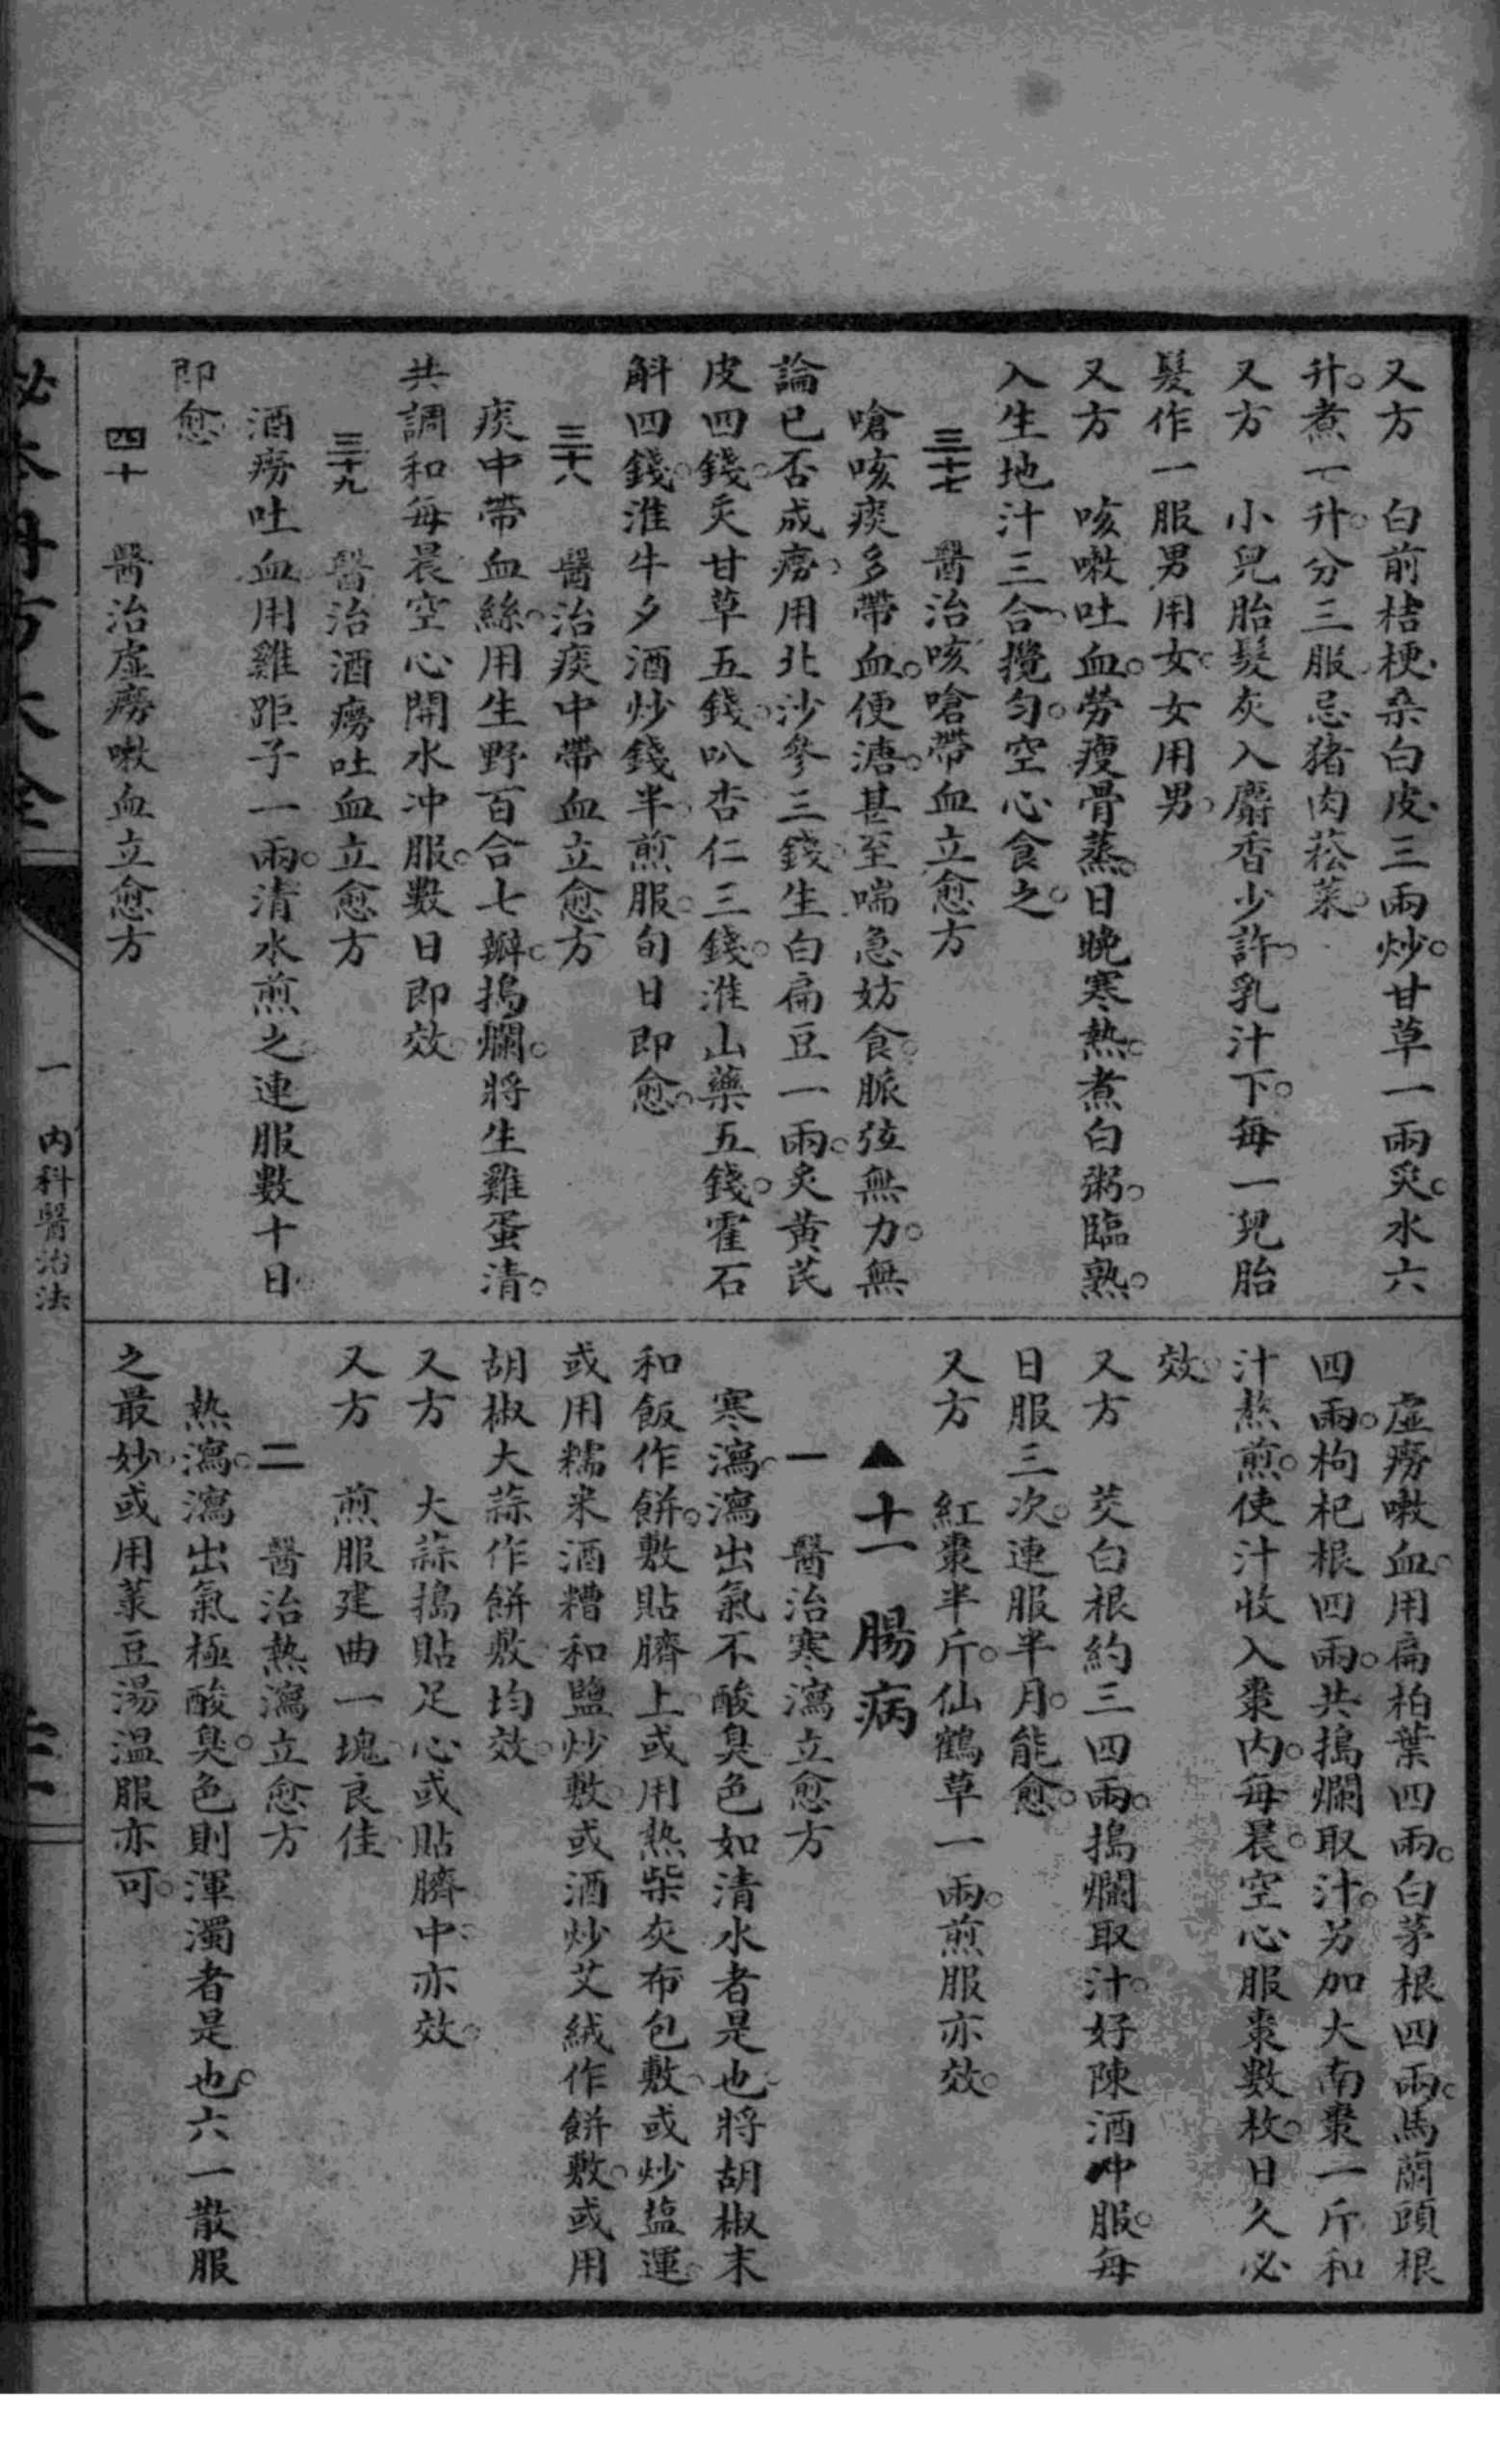 又方　白前桔梗、桑白皮、三兩炒。甘草一兩炙。水六
升。煮一升。分三服。忌猪肉菘菜。
又方　小兒胎髮灰入麝香少許、乳汁下。每一兒胎
髮作一服男用女。女用男。
又方　咳嗽吐血。勞瘦骨蒸。日晚寒熱。煮白粥。臨熟。
入生地汁三合、攪勻。空心食之。
三十七　醫治咳嗆帶血立愈方
嗆咳痰多帶血。便溏。甚至喘急妨食。脈弦無力。無
論已否成癆、用北沙參三錢。生白扁豆一兩。炙黃芪
皮四錢。炙甘草五錢。叭杏仁三錢。淮山藥五錢。霍石
斛四錢。淮牛夕酒炒錢半。煎服。旬日即愈。
三十八　醫治痰中帶血立愈方
痰中帶血絲、用生野百合七瓣。搗爛。將生雞蛋清。
共調和每晨空心開水冲服。數日即效。
三十九　醫治酒癆吐血立愈方
酒癆吐血用雞距子一兩。清水煎之。連服數十日。
即愈。
四十　醫治虛癆嗽血立愈方
虛癆嗽血。用扁柏葉四兩。白茅根四兩。馬蘭頭根
四兩。枸杞根四兩。共搗爛取汁。另加大南棗一斤和
汁熬煎。使汁收入棗內。每晨。空心服棗數枚。日久必
效。
又方　茭白根約三四兩。搗爛取汁。好陳酒冲服。每
日服三次。連服半月。能愈。
又方　紅棗半斤。仙鶴草一兩。煎服亦效。
▲十一　腸病
一　醫治寒瀉立愈方
寒瀉、瀉出氣不酸臭色如清水者是也、將胡椒末
和飯作餅。敷貼臍上。或用熱柴灰布包敷、或炒鹽運。
或用糯米酒糟和鹽炒敷。或酒炒艾絨作餅敷。或用
胡椒大蒜作餅敷均效。
又方　大蒜搗貼足心或貼臍中亦效。
又方　煎服建曲一塊良佳
二　醫治熱瀉立愈方
熱瀉。瀉出氣極酸臭。色則渾濁者是也。六一散服
之最妙。或用菉豆湯温服亦可。
一　內科醫治法